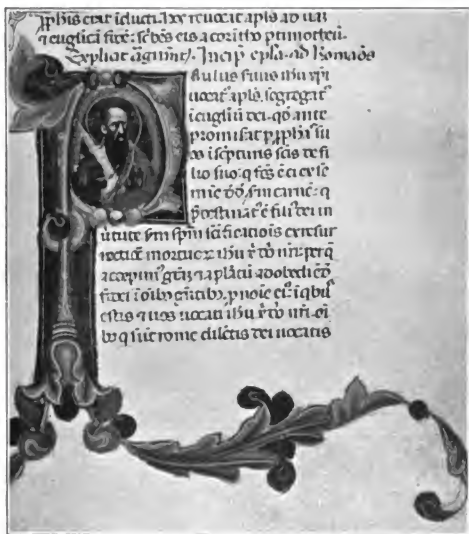 pphis erat iducti. hos reuocat apls ad uaz
⁊ euglicā fidē: scbēs eis a corītho p timotheū.
Explicit āgumt). Incip epla ad Romaōs
Aulus suus ihu xpi
uocat apls. segregat
ī eugliū dei. qd ante
promisat p pphās su
os ī scpturis scis de fi
lio suo: q fcs ē ei ex se
mīe dd. sm carnē: q
pdestinat ē fili dei in
uirtute sm spm scificatiois ex resur
rectiōe mortuoꝝ ihu x dn nri: per q
accepim grām ⁊ aplatū ad obediēdū
fidei ī oībs gētibz. p noīe ei: ī qbus
estis ⁊ uos uocati ihu x dn nri. oī
bz q sūt rome dilcīs dei uocatis